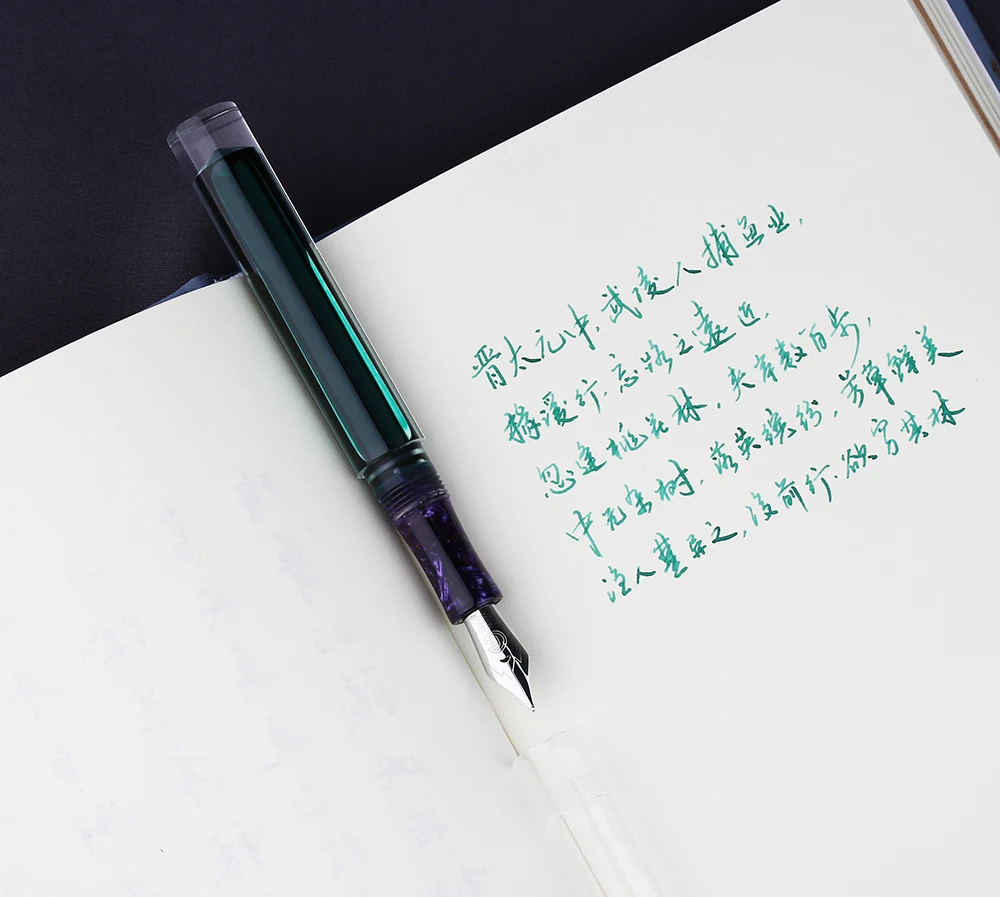 晋太元中,武陵人捕鱼业,
缘溪行,忘路之遠近,
忽逢桃花林,夹岸数百步,
中无杂树,落英缤纷,芳草鲜美
渔人甚异之,复前行,欲穷其林